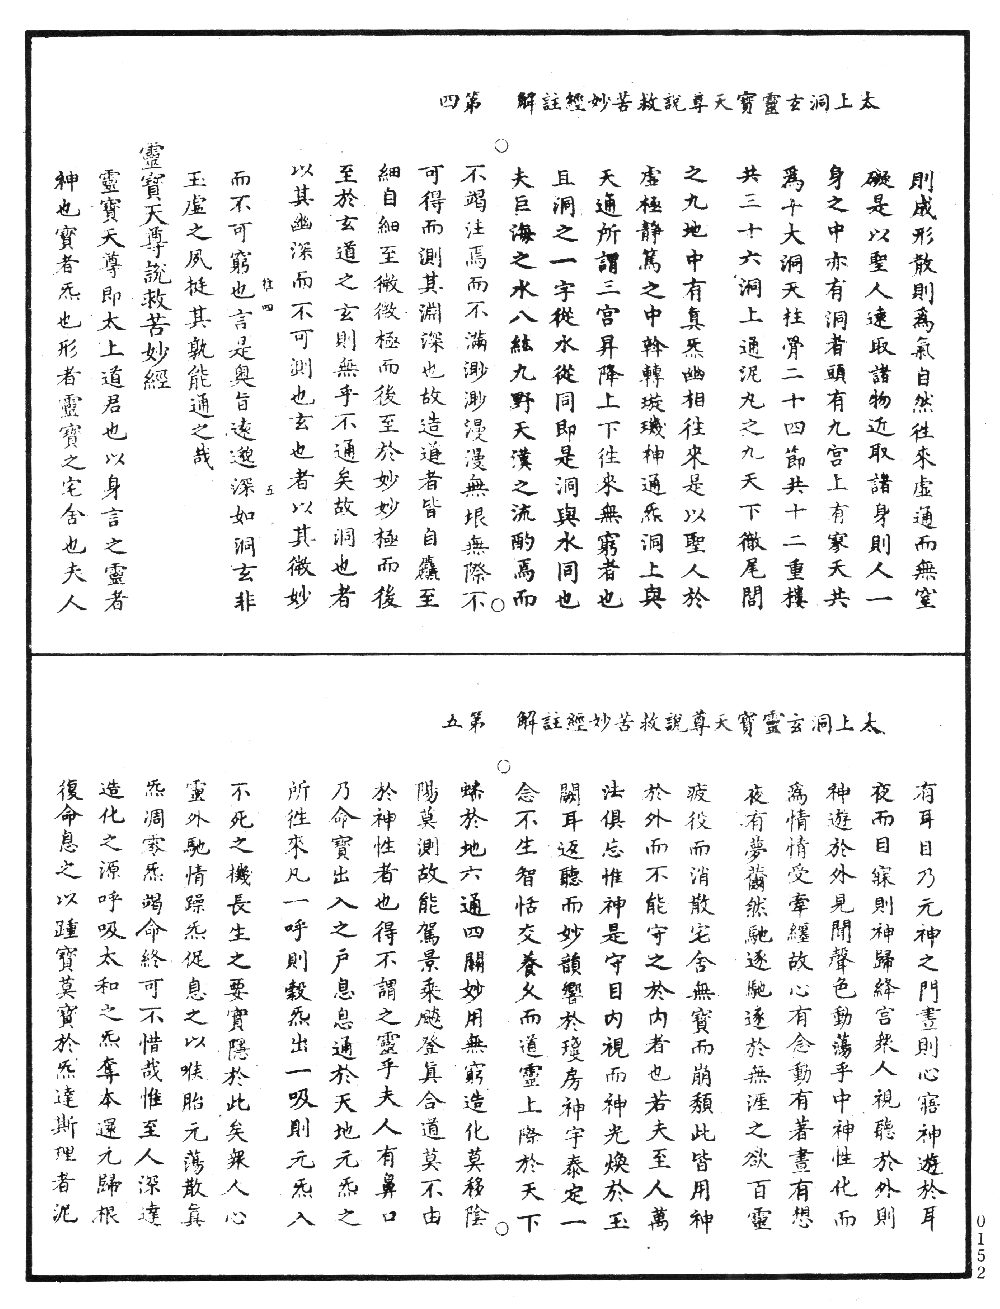 太上洞玄靈寶天尊說救苦妙經註解　第四
則成形散則為氣自然往來虛通而無窒
礙是以聖人遠取諸物近取諸身則人一
身之中亦有洞者頭有九宮上有寥天共
為十大洞天柱骨二十四節共十二重樓
共三十六洞上通泥丸之九天下徹尾閭
之九地中有真炁幽相往來是以聖人於
虛極靜篤之中斡轉璇璣神通炁洞上與
天通所謂三宮昇降上下往來無窮者也
且洞之一字從水從同即是洞與水同也
夫巨海之水八紘九野天漢之流酌焉而
不竭注焉而不滿渺渺漫漫無垠無際不
可得而測其淵深也故造道者皆自麤至
細自細至微微極而後至於妙妙極而後
至於玄道之玄則無乎不通矣故洞也者
以其幽深而不可測也玄也者以其微妙
而不可窮也言是奧旨遠邈深如洞玄非
推四　五
玉虛之夙挺其孰能通之哉
靈寶天尊說救苦妙經
靈寶天尊即太上道君也以身言之靈者
神也寶者炁也形者靈寶之宅舍也夫人
太上洞玄靈寶天尊說救苦妙經註解　第五
有耳目乃元神之門晝則心寤神遊於耳
夜而目寐則神歸絳宮眾人視聽於外則
神遊於外見聞聲色動蕩乎中神性化而
為情情受牽纏故心有念動有著晝有想
夜有夢薾然馳逐馳逐於無涯之欲百靈
疲役而消散宅舍無寶而崩頹此皆用神
於外而不能守之於內者也若夫至人萬
法俱忘惟神是守目內視而神光煥於玉
闕耳返聽而妙韻響於瓊房神宇泰定一
念不生智恬交養久而道靈上降於天下
蟠於地六通四闢妙用無窮造化莫移陰
陽莫測故能駕景乘飈登真合道莫不由
於神性者也得不謂之靈乎夫人有鼻口
乃命寶出入之戶息息通於天地元炁之
所往來凡一呼則穀炁出一吸則元炁入
不死之機長生之要實隱於此矣眾人心
靈外馳情躁炁促息之以喉胎元蕩散真
炁凋零炁竭命終可不惜哉惟至人深達
造化之源呼吸太和之炁奪本還元歸根
復命息之以踵寶莫寶於炁達斯理者泥
0152